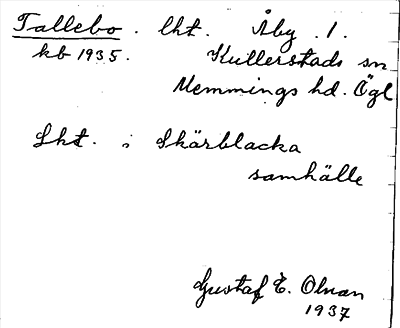 Tallebo. lht. Åby. 1.
kb 1935. Kullerstads sn
Memmings hd. Ögl
Lht. i Skärblacka
samhälle
Gustaf E. Olnan
1937